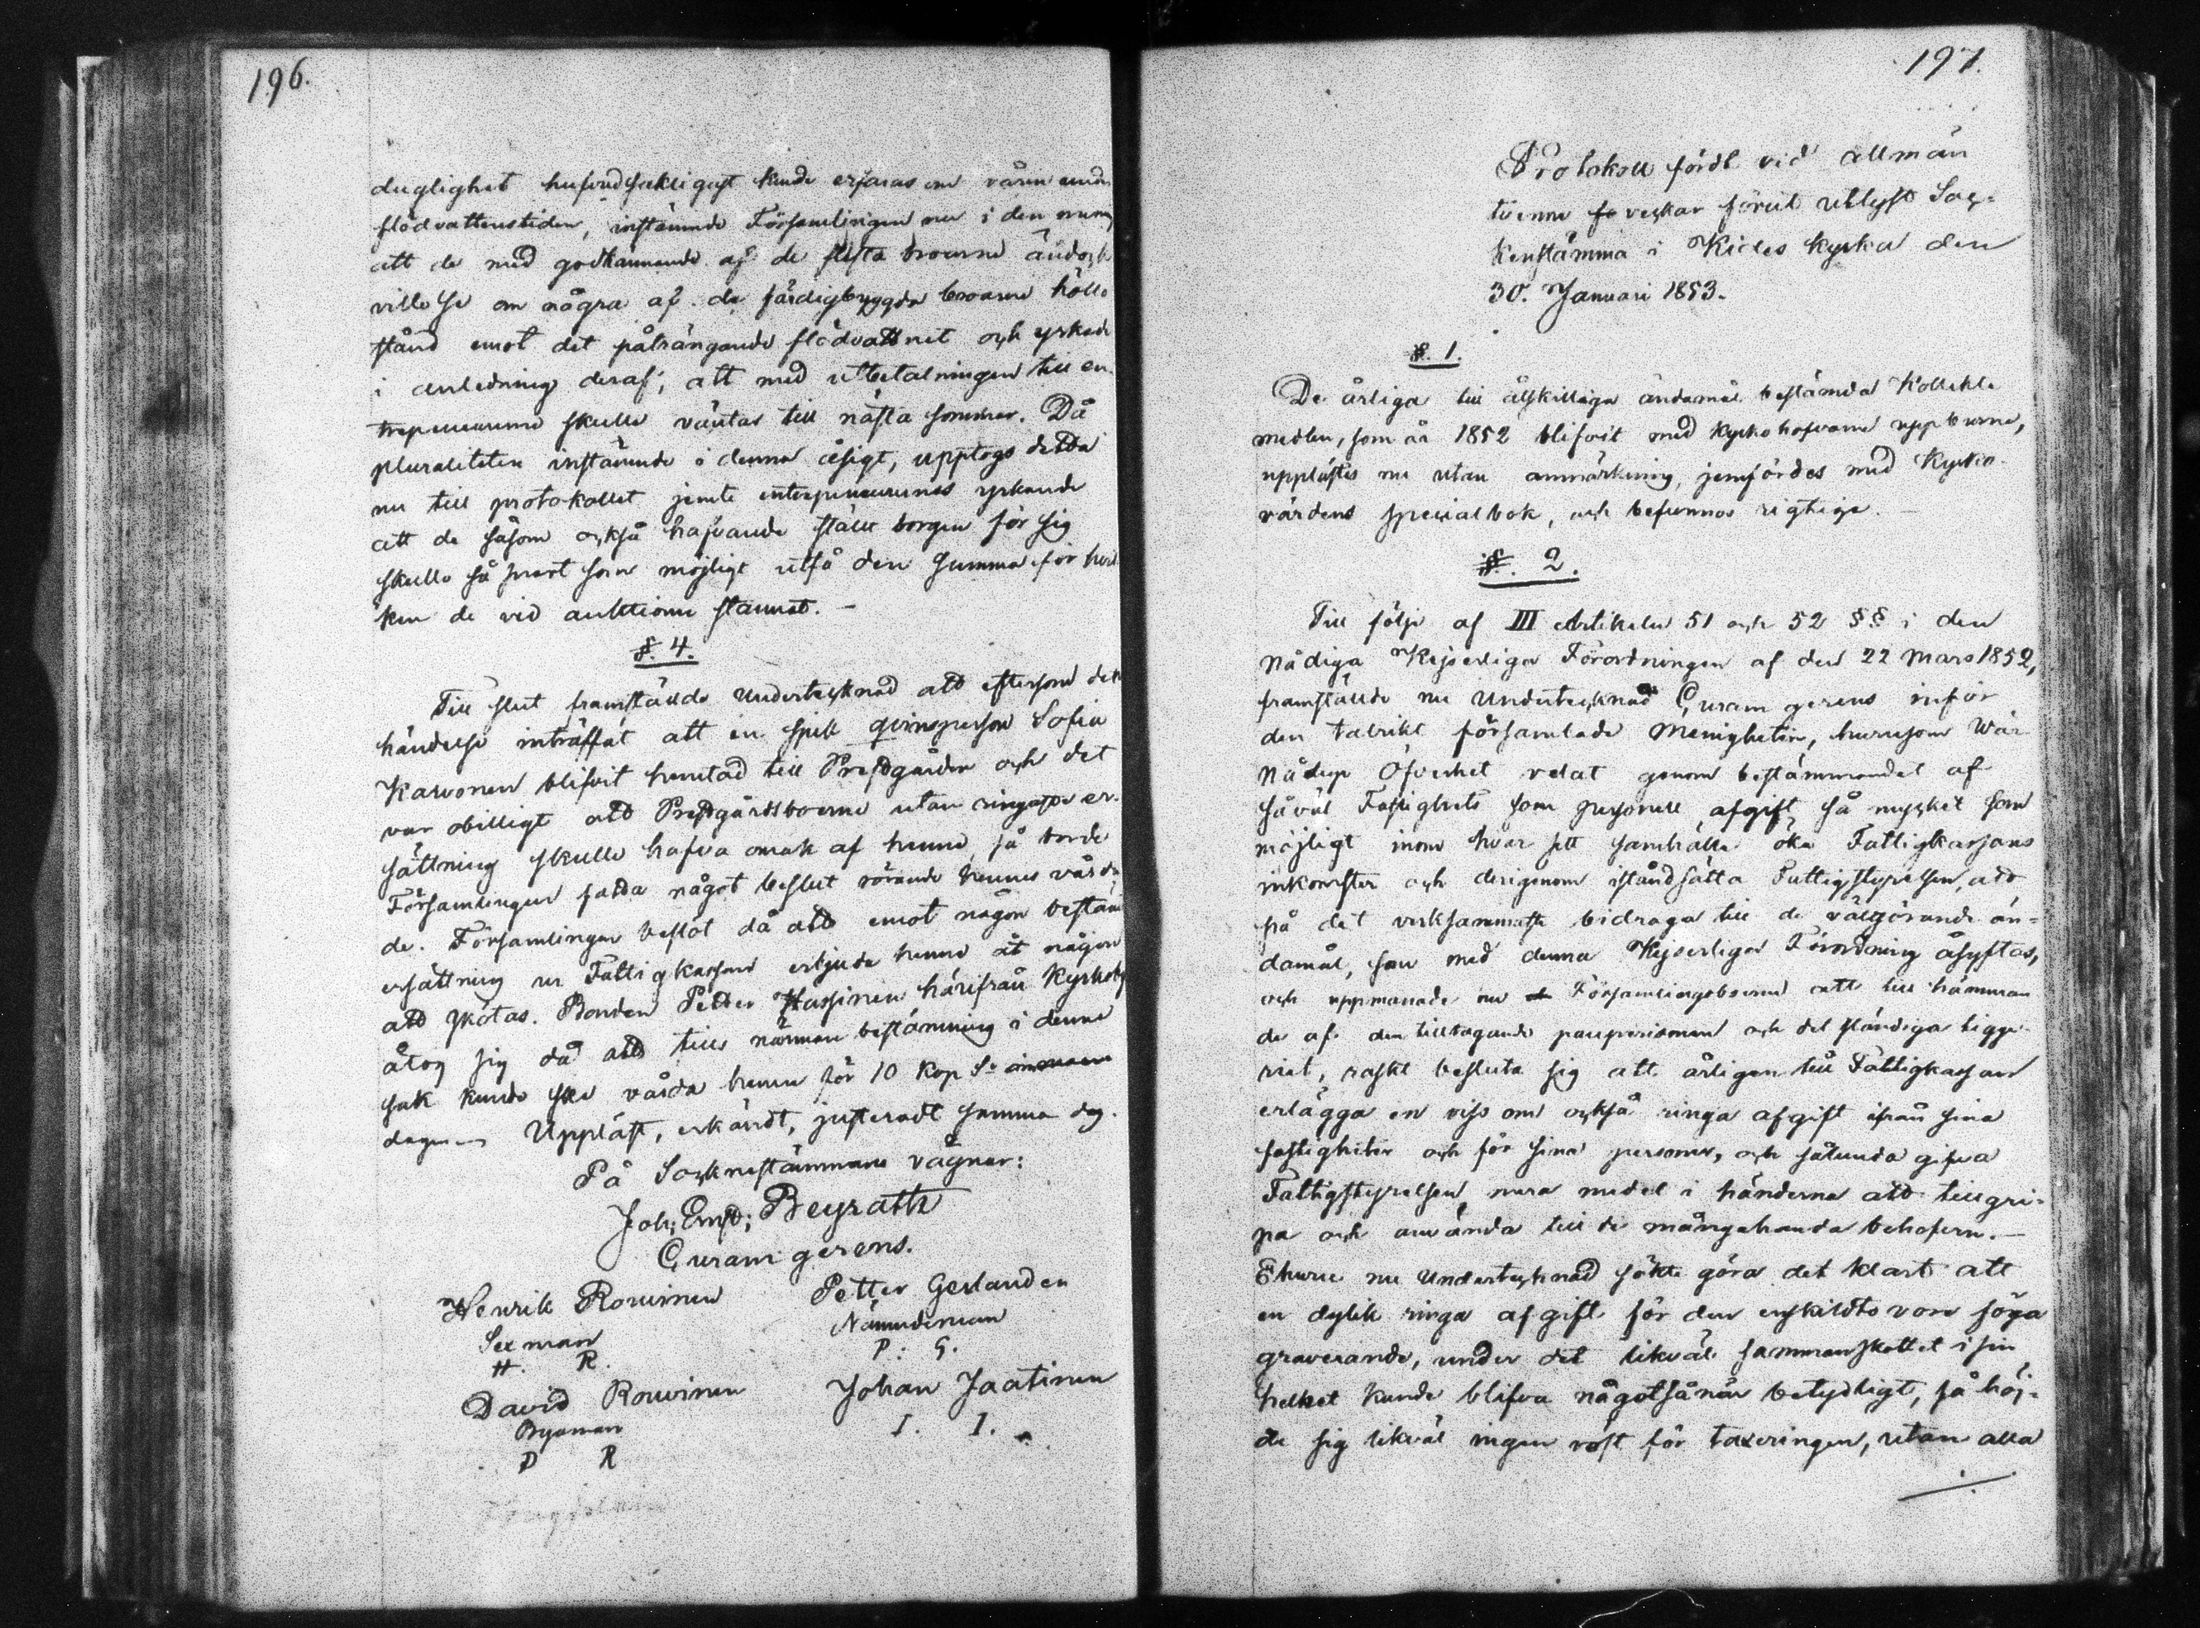 196.
duglighet hufvudsakligast kunde erfaras om våren under
flödvattenstiden, instämde Församlingen nu i den mening
att de med godkännande af de flesta broarne ändock
ville se om några af de färdigbyggda broarne höllo
stånd emot det påträngande flödvattnet och yrkade
i anledning deraf, att med utbetalningen till en-
trepreneurerne skulle väntas till nästa sommar. Då
pluraliteten instämde i denna åsigt, upptogs detta
nu till protokollet jemte entrepreneurernes yrkande
att de såsom också hafvande ställt borgen för sig
skulle så snart som möjligt utfå den Summa för hvil
ken de vid auktionen stannat. –
§. 4.
Till slut framställde Undertecknad att eftersom den
händelse inträffat att en sjuk qvinsperson Sofia
Karvonen blifvit hemtad till Prestgården och det
var obilligt att Prestgårdsboerne utan ringaste er-
sättning skulle hafva omak af henne, så borde
Församlingen fatta något beslut rörande hennes vårdan
de. Församlingen beslöt då att emot någon bestämd
ersättning ur Fattigkassan erbjuda henne åt någon
att skötas. Bonden Petter Hassinen härifrån Kyrkoby
åtog sig då att tills närmare bestämning i denna
sak kunde ske vårda henne för 10 Kop Sr om
dagen – Uppläst, erkändt, justeradt samma dag.
På Socknestämmans vägnar:
Joh: Ernst: Beyrath
Curam gerens.
Henrik Rouvinen Petter Gerlanden
Sexman Nämndeman
H. R. P. G.
David Rouvinen Johan Jaatinen
Byaman I. I.
D R
197.
Protokoll fördt vid allmän
tvenne veckor förut utlyst Soc-
kenstämma i Kides kyrka den
30. Januari 1853.
§. 1.
De årliga till åtskilliga ändamål bestämda Kollekt-
medlen, som år 1852 blifvit med kyrkohofvarne uppburne,
upplästes nu utan anmärkning, jemfördes med Kyrko-
värdens specialbok, och befunnos rigtiga. –
§. 2.
Till följe af III Artikelns 51 och 52 §§ i den
Nådiga Kejserliga Förordningen af den 22 Mars 1852,
framställde nu Undertecknad Curam gerens inför
den talrikt församlade Menigheten, hurusom Wår
Nådige Öfverhet velat genom bestämmandet af
såväl Fastighets som personell afgift, så mycket som
möjligt inom hvar sitt samhälle öka Fattigkassans
inkomster och derigenom iståndsätta Fattigstyrelsen, att
på det verksammaste bidraga till de välgörande än-
damål, som med denna Kejserliga Förordning åsyftas,
och uppmanade nu Församlingsboerne att till hämman
de af den tilltagande pauperismen och det ständiga tigge-
riet, raskt besluta sig att årligen till Fattigkassan
erlägga en viss om också ringa afgift ifrån sina
fastigheter och för sina personer, och sålunda gifva
Fattigstyrelsen mera medel i händerna att tillgri-
pa och använda till de mångahanda behofven. –
Ehuru nu Undertecknad sökte göra det klart att
en dylik ringa afgift för den enskildte vore föga
graverande, under det likväl sammanskottet i sin
helhet kunde blifva någotsånär betydligt, så höj-
de sig likväl ingen röst för taxeringen, utan alla